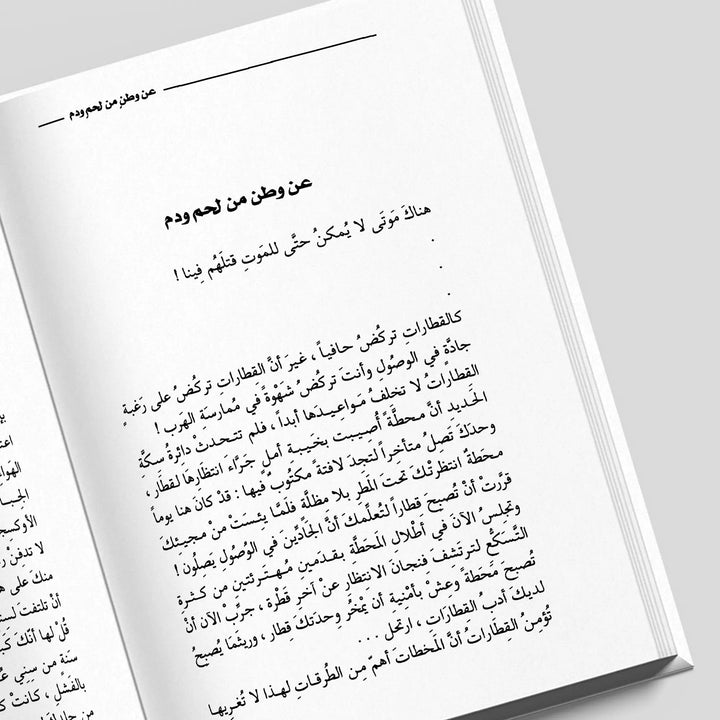 عن وطنٍ من لحمٍ ودم
عن وطن من لحم ودم
هناكَ مَوتَى لا يُمكنُ حتَّى للمَوتِ قتلَهُم فِينا !
.
.
.
كالقطاراتِ تركُضُ حافياً ، غيرَ أنَّ القطاراتِ تركُضُ على رَغبةٍ
جادَّة في الوصُولِ وأنتَ تركُضُ شَهْوةً في مُمارسَةِ الهرب !
القطاراتُ لا تخلفُ مَواعِيدَها أبداً ، فلم تتحدثْ دائرةُ سكَّةِ
الحَديدِ أنَّ محطَّةً أُصِيبت بخَيبةِ أملٍ جَرَّاءَ انتظَارِهَا لقطَار ،
وحدَكَ تَصِلُ متأخراً لتجدَ لافتةً مكتُوبٌ فيها : قدْ كانَ هنا يوماً
محَطةٌ انتظرتْكَ تحتَ المَطرِ بلا مظلَّة فلَمَّا يئِسَتْ منْ مجيئكَ
قررَّتْ أنْ تُصبحَ قطاراً لتُعلِّمَكَ أنَّ الجَادِّينَ في الوُصُولِ يَصِلُون !
وتجلسُ الآنَ في أطْلالِ المَحَطَّةِ بقدَمينِ مُهترئتينِ من كثرةِ
التَّسَكُّعِ لترتَشِفَ فنجانَ الانتِظارِ عنْ آخرِ قَطْرة ، جرِّبْ الآن أنْ
تُصبحَ مَحَطةً وعشْ بأمْنيةِ أن يَمْخُرَ وِحدَتكَ قِطار ، وريثمَا يُصبحُ
لديكَ أدبُ القِطارَات ، ارتحل ...
تُؤمِنُ القِطاراتُ أنَّ المَحطاتَ أهمّ مِن الطُرقاتِ لهذا لا تُغرِيها